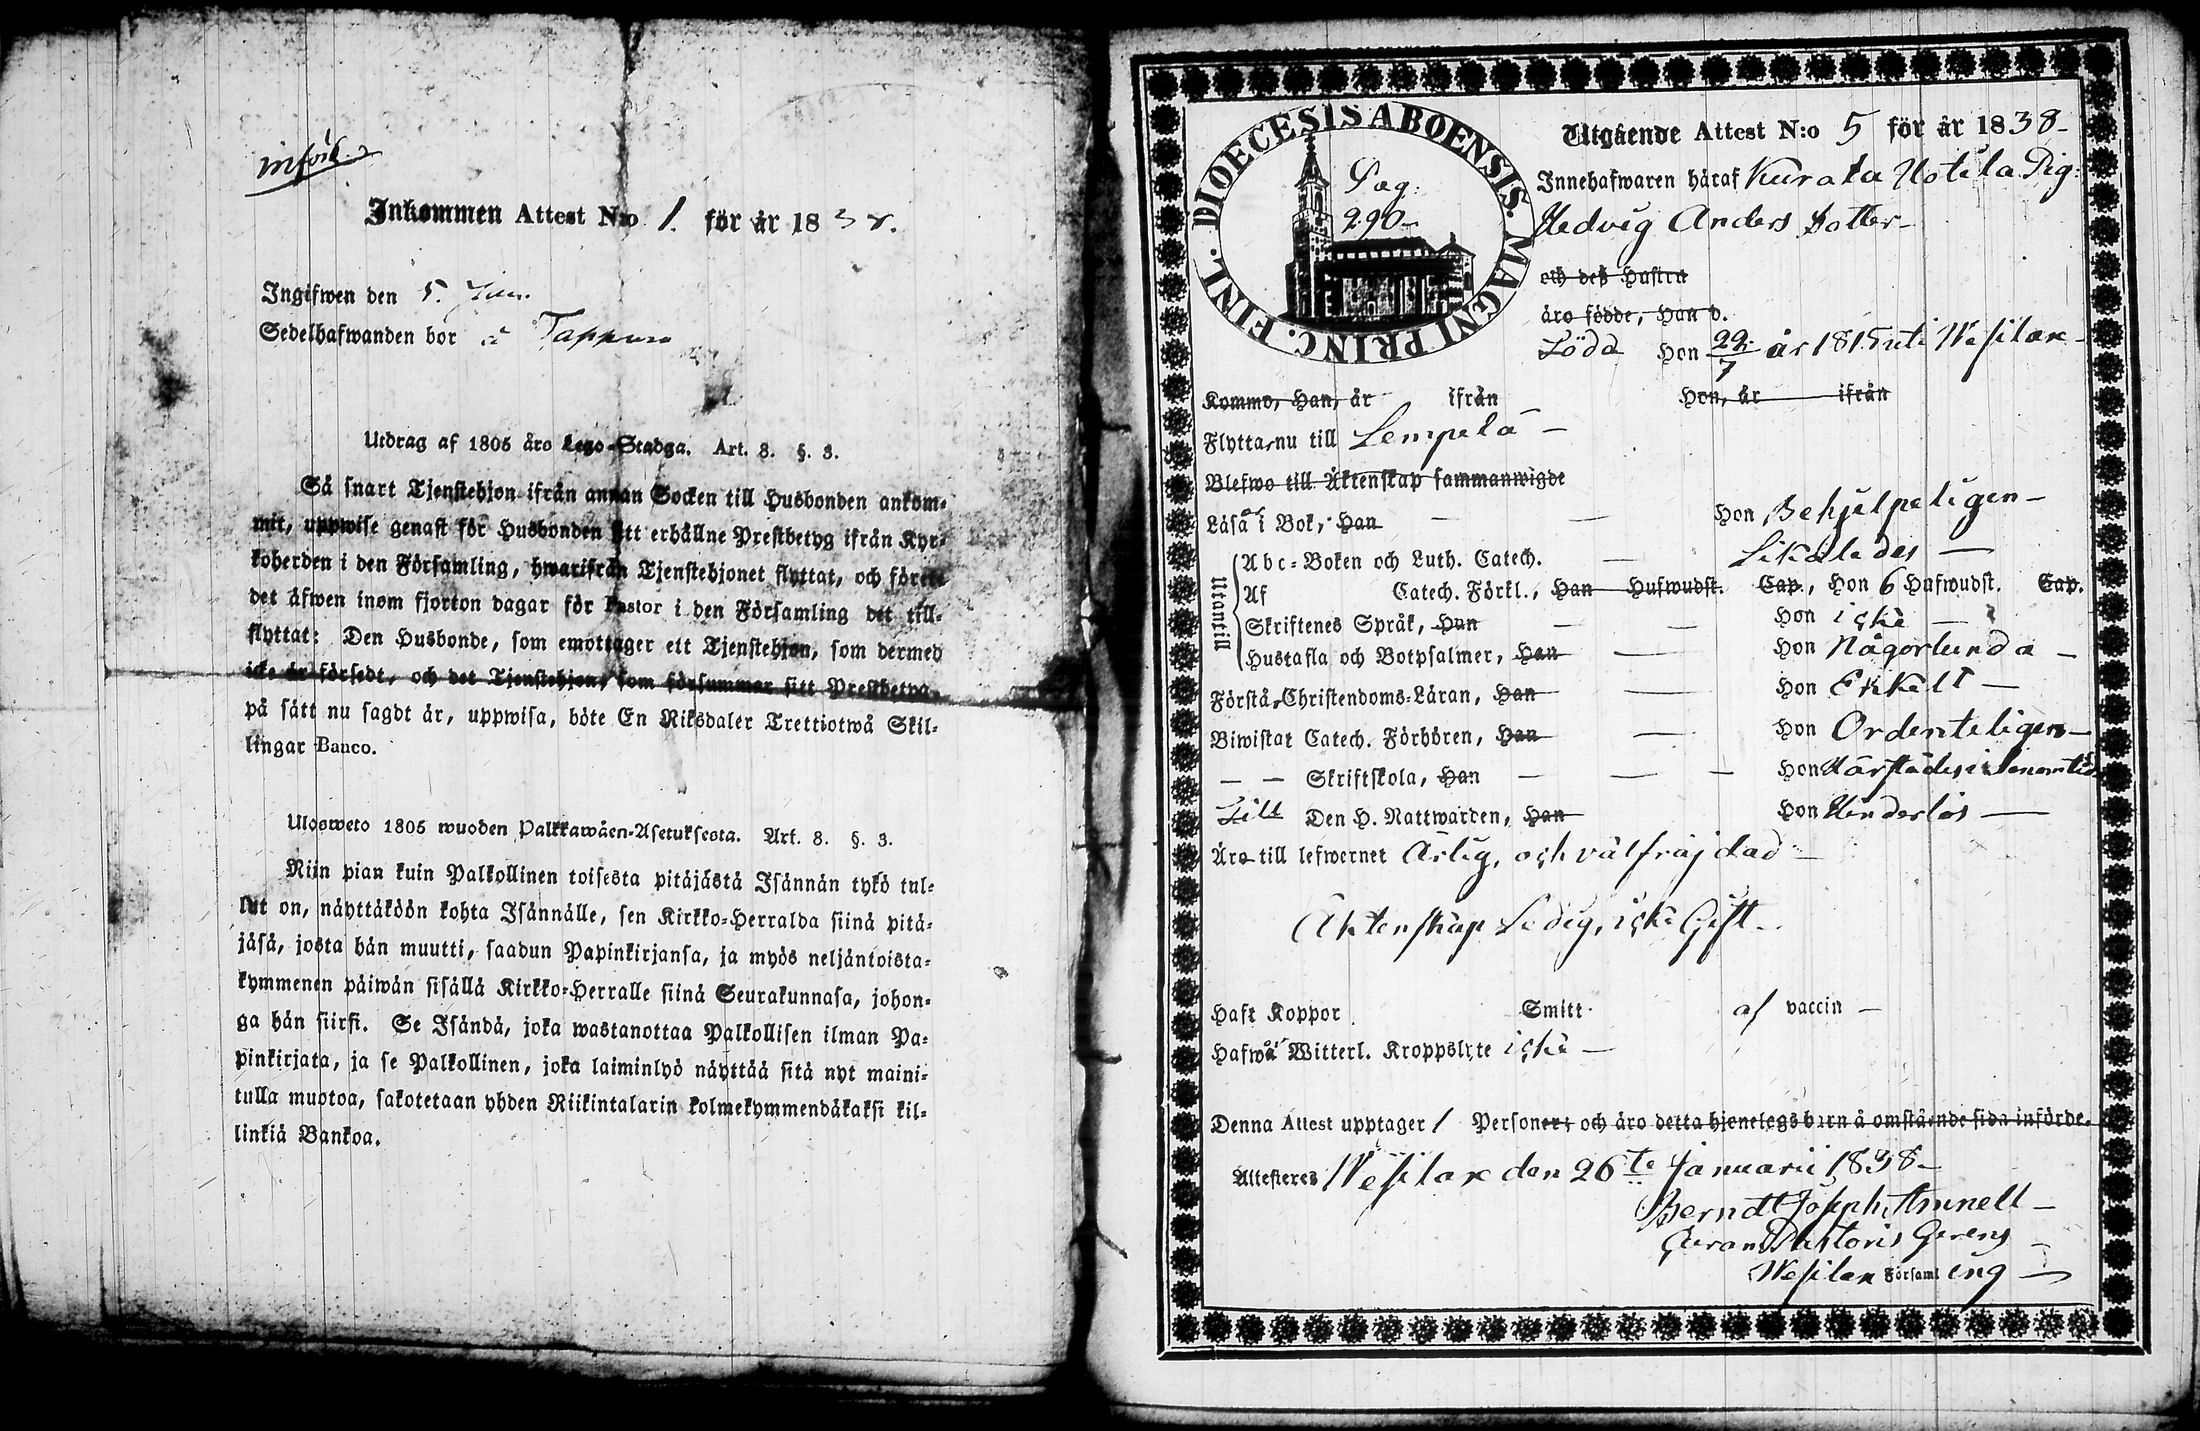 införd
Inkommen Attest N:o 1. för år 1838.
Ingifwen den 5.
Sedelhafwanden bor i Tappura
Utdrag af 1805 års Lego-Stadga. Art. 8. §. 3.
Så snart Tjenstehjon ifrån annan Socken till Husbonden ankom-
mit, uppwise genast för Husbonden sitt erhållne Prestbetyg ifrån Kyr-
koherden i den Församling, hwarifrån Tjenstehjonet flyttat, och förete
det äfwen inom fjorton dagar för Pastor i den Församling det till-
flyttat: Den Husbonde, som emottager ett Tjenstehjon, som dermed
icke är försedt, och det Tjenstehjon, som försummar sitt Prestbetyg,
på sätt nu sagdt är, uppwisa, böte En Riksdaler Trettiotwå Skil-
lingar Banco.
Ulosweto 1805 wuoden Palkkawäen-Asetuksesta. Art. 8. §. 3.
Niin pian kuin Palkollinen toisesta pitäjästä Isännän tykö tul-
lut on, näyttäköön kohta Isännälle, sen Kirkko-Herralda siinä pitä-
jäsä, josta hän muutti, saadun Papinkirjansa, ja myös neljäntoista-
kymmenen päiwän sisällä Kirkko-Herralle siinä Seurakunnasa, johon-
ga hän siirsi. Se Isändä, joka wastanottaa Palkollisen ilman Pa-
pinkirjata, ja se Palkollinen, joka laiminlyö näyttää sitä nyt maini-
tulla muotoa, sakotetaan yhden Riikintalarin kolmekymmendäkaksi kil-
linkiä Bankoa.
DIOECESIS ABOENSIS. MAGNI PRINC. FINL.
Pag:
290-
Utgående Attest N:o 5 för år 1838-
Innehafwaren häraf Kurala Uotila Pig:
Hedvig Anders Dotter-
och deß Hustru
äro födde, Han d.
Född Hon 29/7 år 1815 uti Wesilax-
Komme, Han, år ifrån Hon, år ifrån
Flytta, nu till Lempelä -
Blefwo till Äktenskap sammanwigde
Läsa i Bok, Han - - Hon Behjelpeligen -
Utantill
Abc-Boken och Luth. Catech. - Likaledes -
Af Catech. Förkl., Han Hufwudst. Cap., Hon 6 Hufwudst. Cap.
Skriftenes Språk, Han - - Hon icke -
Hustafla och Botpsalmer, Han - Hon Någorlunda -
Förstå Christendoms-Läran, Han - Hon Enkelt -
Biwistat Catech. Förhören, Han - Hon Ordenteligen -
- - Skriftskola, Han - - - Hon
Till Den H. Nattwarden, Han Hon Hinderlös -
Äro till lefwernet Ärlig, och välfräjdad -
Äktenskap Ledig, icke Gift.
Haft Koppor Smitt af vaccin -
Hafwa Witterl. Kroppslyte icke -
Denna Attest upptager 1 Personer; och äro detta hjonelags barn å omstående sida införde.
Attesteres Wesilax den 26te Januarii 1838-
Berndt Joseph Amnell -
Curam Pastoris Gerens -
Wesilax Församling -